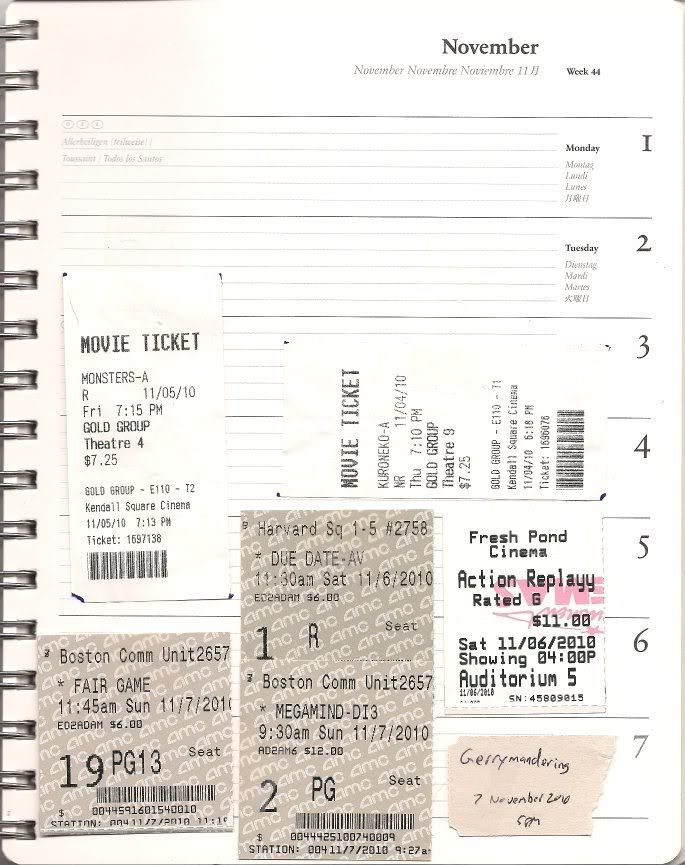 November
November Novembre Noviembre 11月 Week 44
Allerheiligen (teilweise) |
Toussaint | Todos los Santos
Monday 1
Montag
Lundi
Lunes
月曜日
Tuesday 2
Dienstag
Mardi
Martes
火曜日
3
4
5
6
7
MOVIE TICKET
MONSTERS-A
R 11/05/10
Fri 7:15 PM
GOLD GROUP
Theatre 4
$7.25
GOLD GROUP - E110 - T2
Kendall Square Cinema
11/05/10 7:13 PM
Ticket: 1697138
MOVIE TICKET
KURONEKO-A
NR 11/04/10
Thu 7:10 PM
GOLD GROUP
Theatre 9
$7.25
GOLD GROUP - E110 - T1
Kendall Square Cinema
11/04/10 6:18 PM
Ticket: 1696076
Harvard Sq 1-5 #2758
* DUE DATE-AV
11:30am Sat 11/6/2010
ED2ADAM $6.00
Seat
1 R
Fresh Pond
Cinema
Action Replayy
Rated G
$11.00
Sat 11/06/2010
Showing 04:00P
Auditorium 5
11/06/2010
SN:45809015
Boston Comm Unit2657
* FAIR GAME
11:45am Sun 11/7/2010
ED2ADAM $6.00
Seat
19 PG13
$ 0044591601540010
STATION: 00411/7/2010 11:1
Boston Comm Unit2657
* MEGAMIND-DI3
9:30am Sun 11/7/2010
AD2AM6 $12.00
Seat
2 PG
$ 0044425100740009
STATION: 00411/7/2010 9:27a
Gerrymandering
7 November 2010
5pm
amc